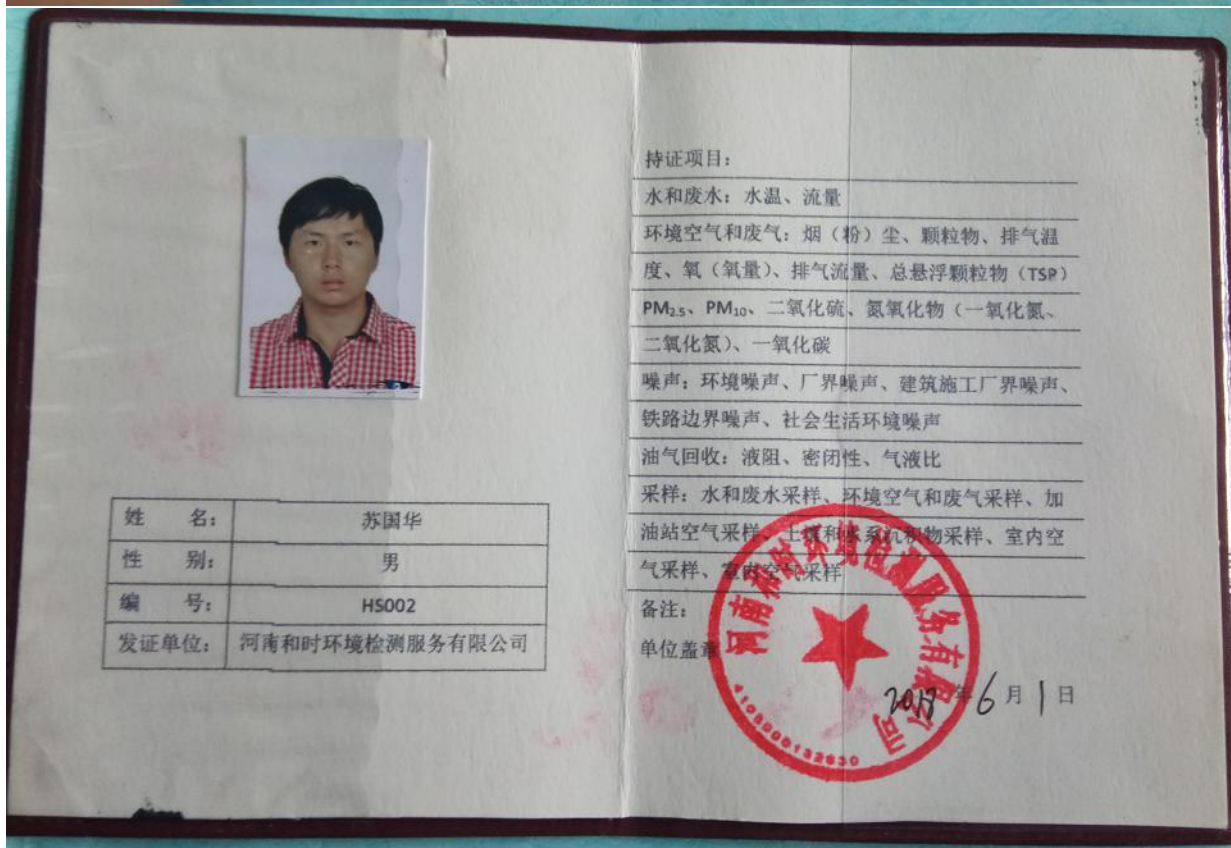 姓 名: 苏国华
性 别: 男
编 号: HS002
发证单位: 河南和时环境检测服务有限公司
持证项目:
水和废水: 水温、流量
环境空气和废气: 烟（粉）尘、颗粒物、排气温
度、氧（氧量）、排气流量、总悬浮颗粒物（TSP）
PM2.5、PM10、二氧化硫、氮氧化物（一氧化氮、
二氧化氮）、一氧化碳
噪声: 环境噪声、厂界噪声、建筑施工厂界噪声、
铁路边界噪声、社会生活环境噪声
油气回收: 液阻、密闭性、气液比
采样: 水和废水采样、环境空气和废气采样、加
油站空气采样、土壤和水系沉积物采样、室内空
气采样、室内空气采样
备注:
单位盖章
河南和时环境检测服务有限公司
2018 年 6 月 1 日